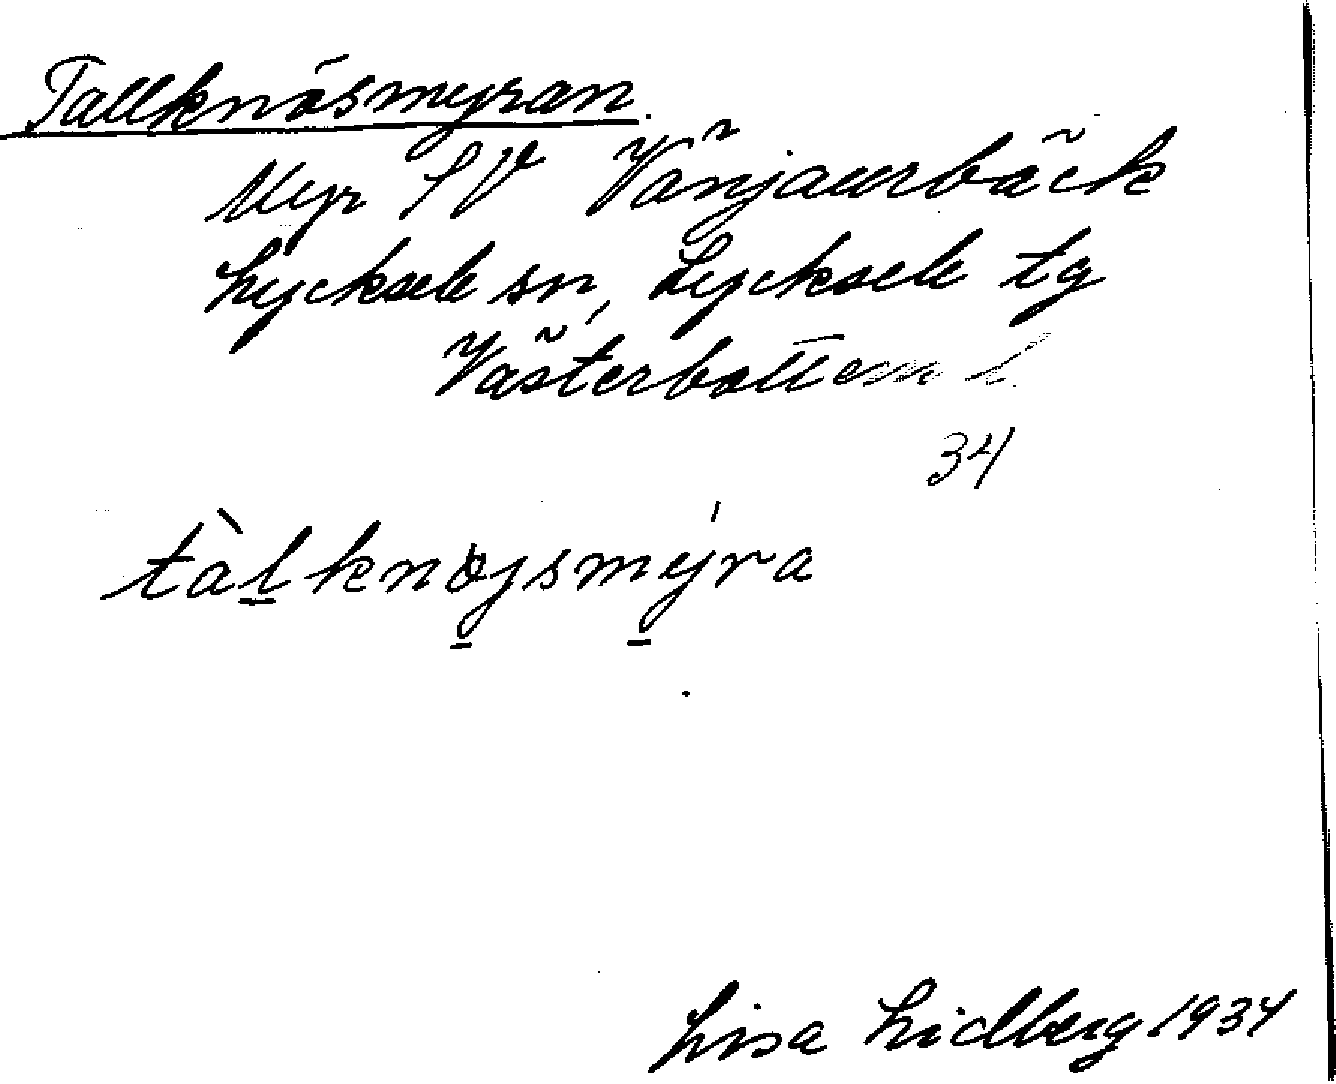 Tallknösmyran.
Myr SV Vänjaurbäck
Lycksele sn, Lycksele tg
Västerbottens l.
34
tàl̲knøjsmýra
Lisa Lidberg 1934